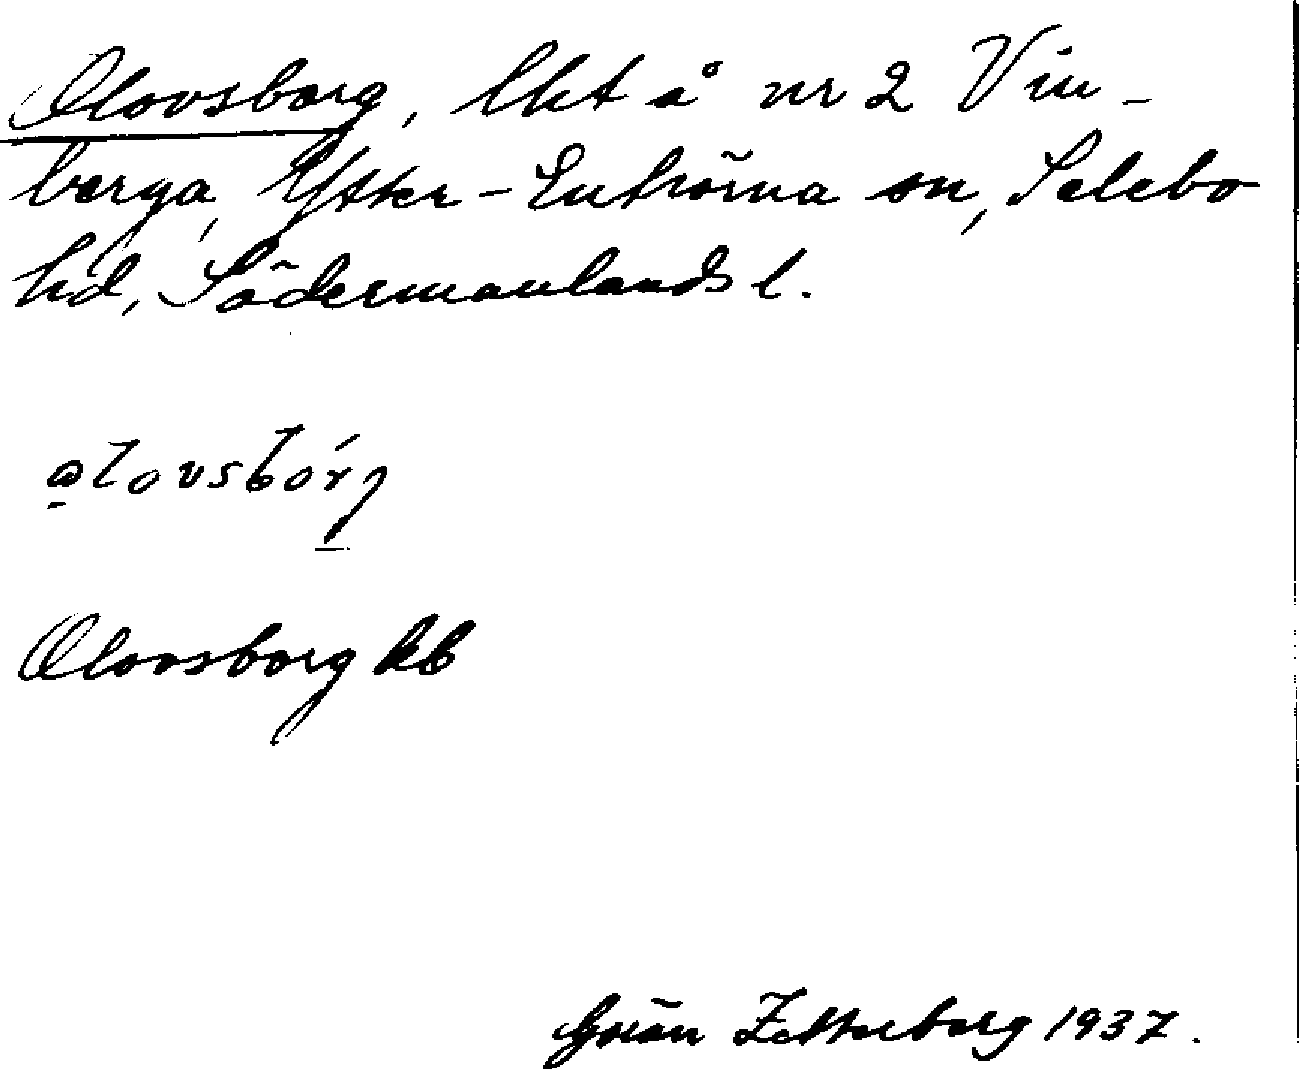 Olovsborg, lht å nr 2 Vin-
berga, Ytter-Enhörna sn, Selebo
hd, Södermanlands l.
olovsbórj
Olovsborg kb
Göran Zetterborg 1937.